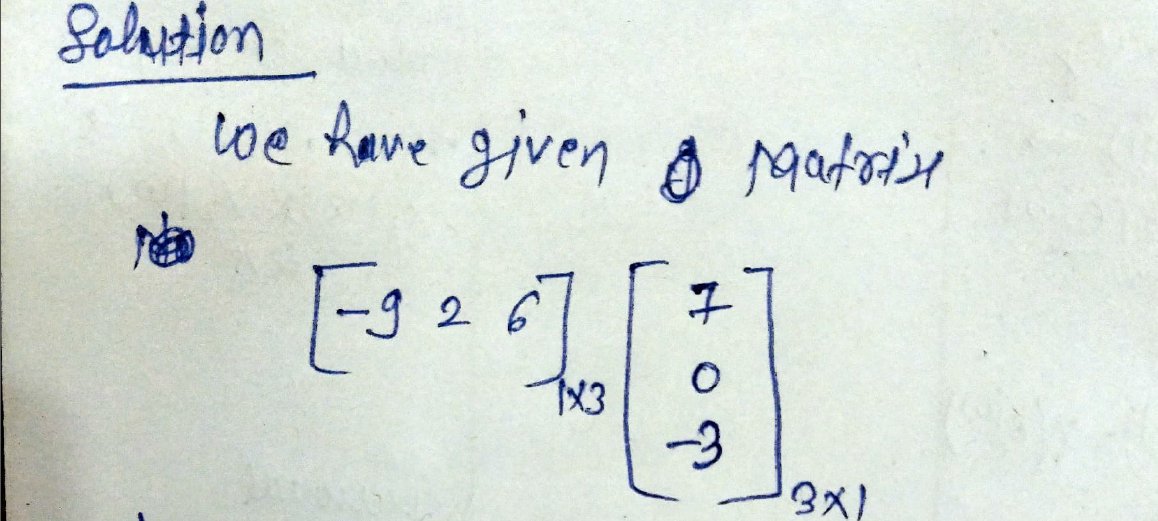 Solution
We have given Matrix
[-9 2 6]1×3 [7
0
-3]3×1